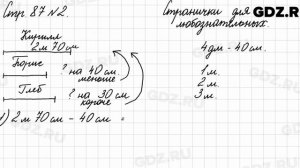 Стр 87 N2.
Кирилл
2 м 70 см
Борис
? на 40 см
меньше
Глеб
? на 30 см
короче
1) 2 м 70 см - 40 см =
Странички для
любознательных.
4 дм - 40 см.
1 м.
2 м.
3 м.
GDZ.RU